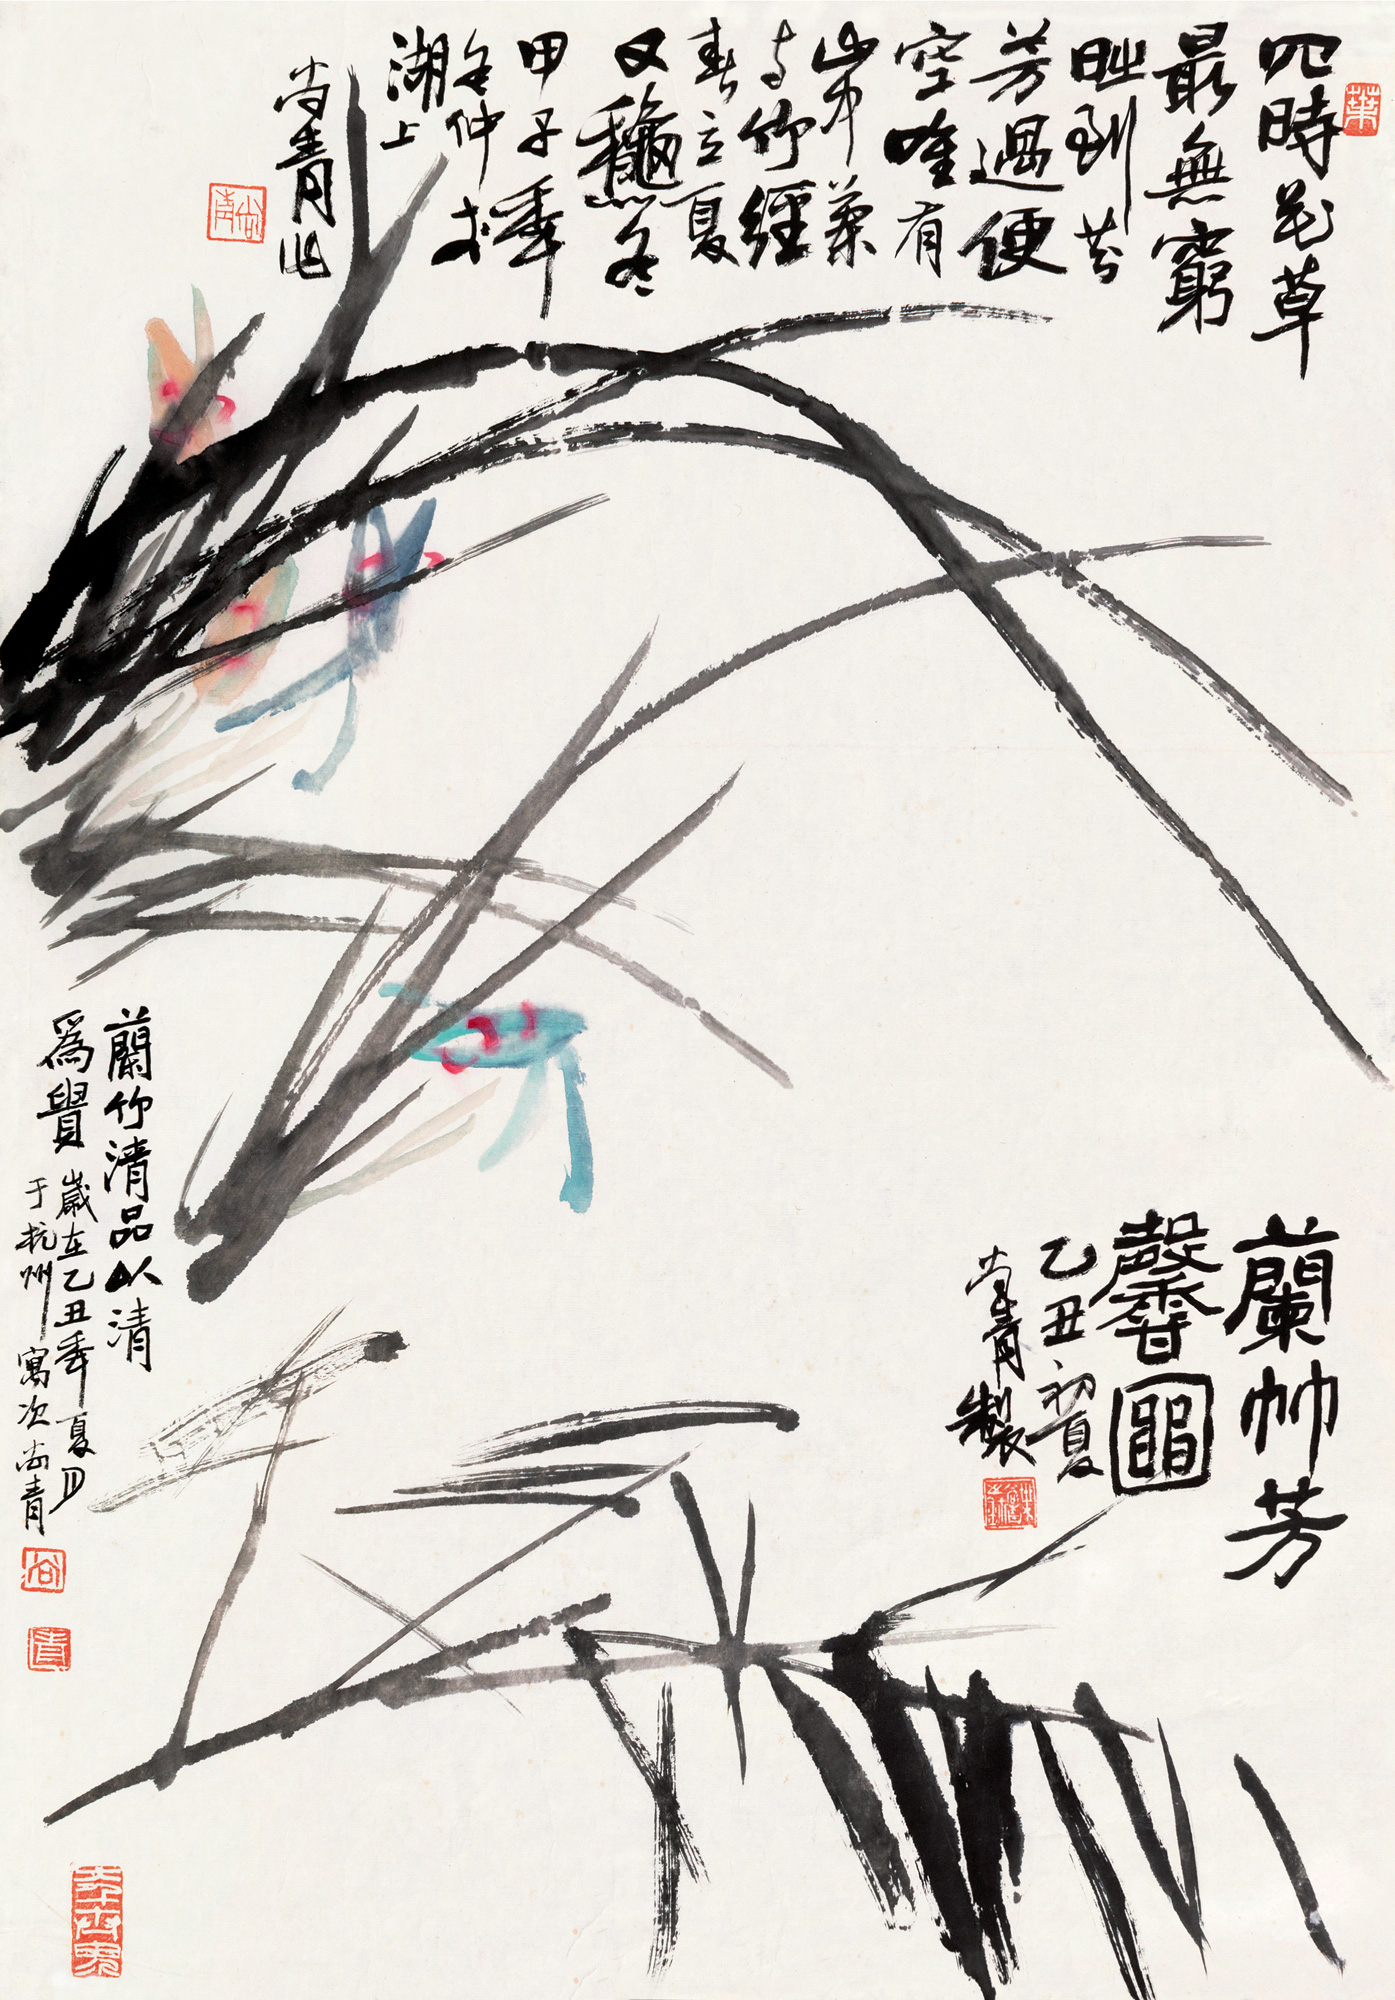 四時花草
最無窮
時到芬
芳過便
空唯有
山中蘭
与竹經
春立夏
又龝冬
甲子季
冬仲於
湖上
尚青作
蘭竹芳
馨圖
乙丑初夏
尚青製
蘭竹清品以清
為貴
歲在乙丑季夏月
于杭州寓次尚青